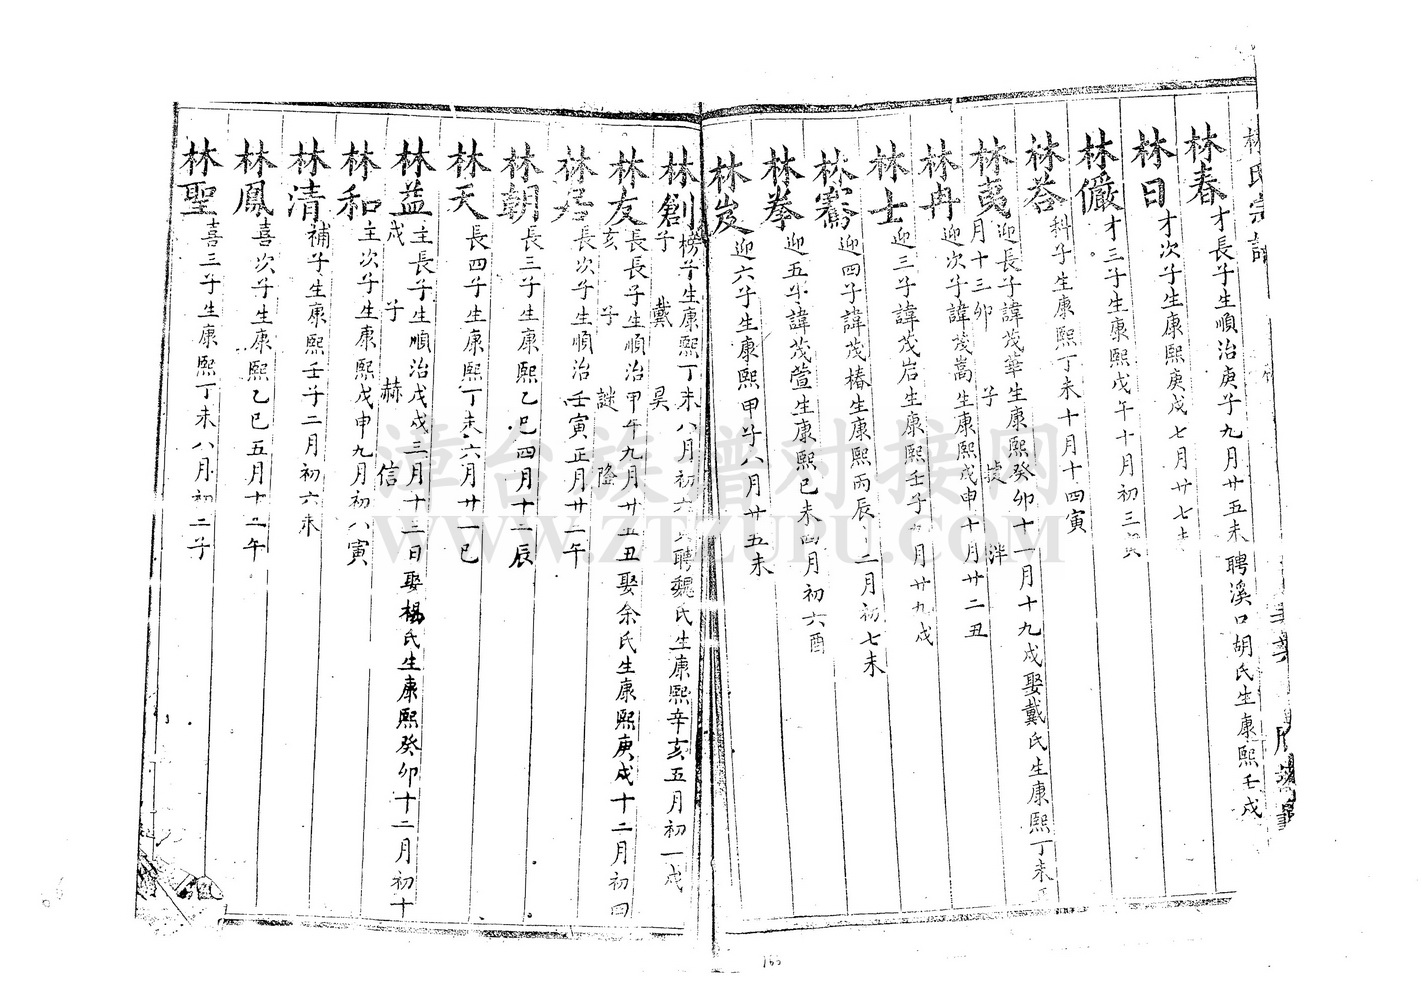 林氏宗譜
林春 才長子生順治庚子九月廿五未聘溪口胡氏生康熙壬戌
林日 才次子生康熙庚戌七月廿七
林儼 才三子生康熙戊午十月初三
林荅 科子生康熙丁未十月十四寅
林 迎長子諱茂華生康熙癸卯十一月十九戌娶戴氏生康熙丁未
月十三卯 子 泮
林冉 迎次子諱茂嵩生康熙戊申十月廿二丑
林士 迎三子諱茂岩生康熙壬子 月廿九戌
林騫 迎四子諱茂椿生康熙丙辰 二月初七未
林拳 迎五子諱茂萱生康熙己未四月初六酉
林岌 迎六子生康熙甲子八月廿五未
林創 榜子生康熙丁未八月初六 聘魏氏生康熙辛亥五月初一戌
子 戴 昊
林友 長長子生順治甲午九月廿五丑娶余氏生康熙庚戌十二月初四
亥 子 謎 隆
林君 長次子生順治壬寅正月廿二午
林朝 長三子生康熙乙巳四月十二辰
林天 長四子生康熙丁未六月廿一巳
林益 主長子生順治戊戌三月十三日娶楊氏生康熙癸卯十二月初十
戌 子 赫 信
林和 主次子生康熙戊申九月初八寅
林清 補子生康熙壬子二月初六未
林鳳 喜次子生康熙乙巳五月十二午
林聖 喜三子生康熙丁未八月初二子
漳台族譜对接网
WWW.ZTZUPU.COM